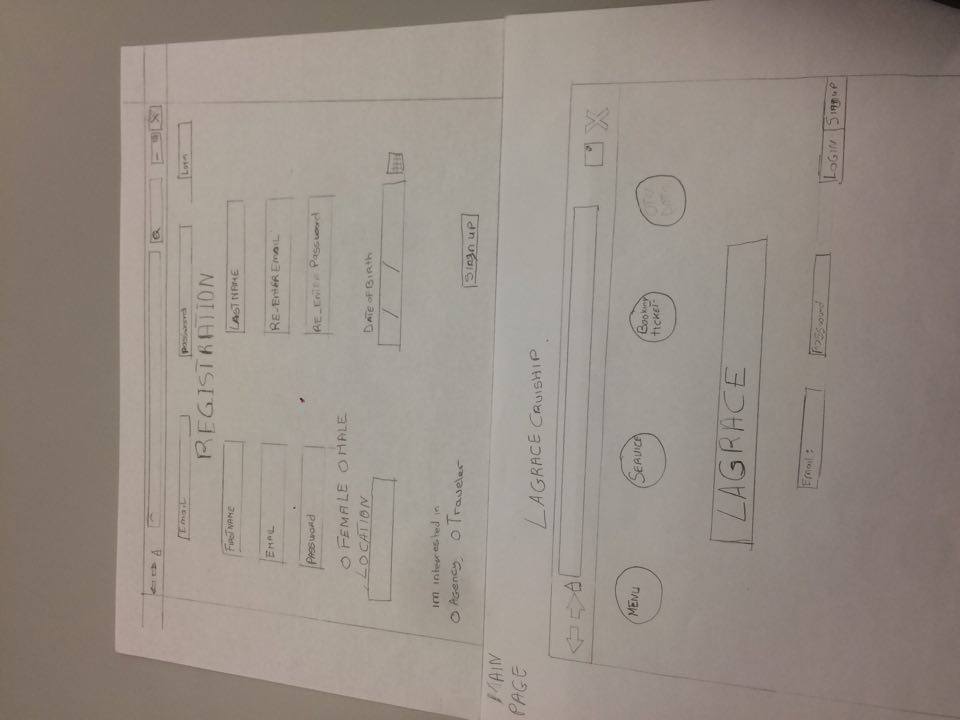 Email Password Login
REGISTRATION
FIRSTNAME LASTNAME
EMAIL RE-ENTER EMAIL
PASSWORD RE-ENTER Password
O FEMALE O MALE
LOCATION DATE of BIRTH
/ /
IM interested in
O Agency O Traveler
SIGN UP
MAIN
PAGE
LAGRACE CRUISHIP.
X
MENU
SERVICE
Booking
TICKET
LAGRACE
Email:
Password
LOGIN